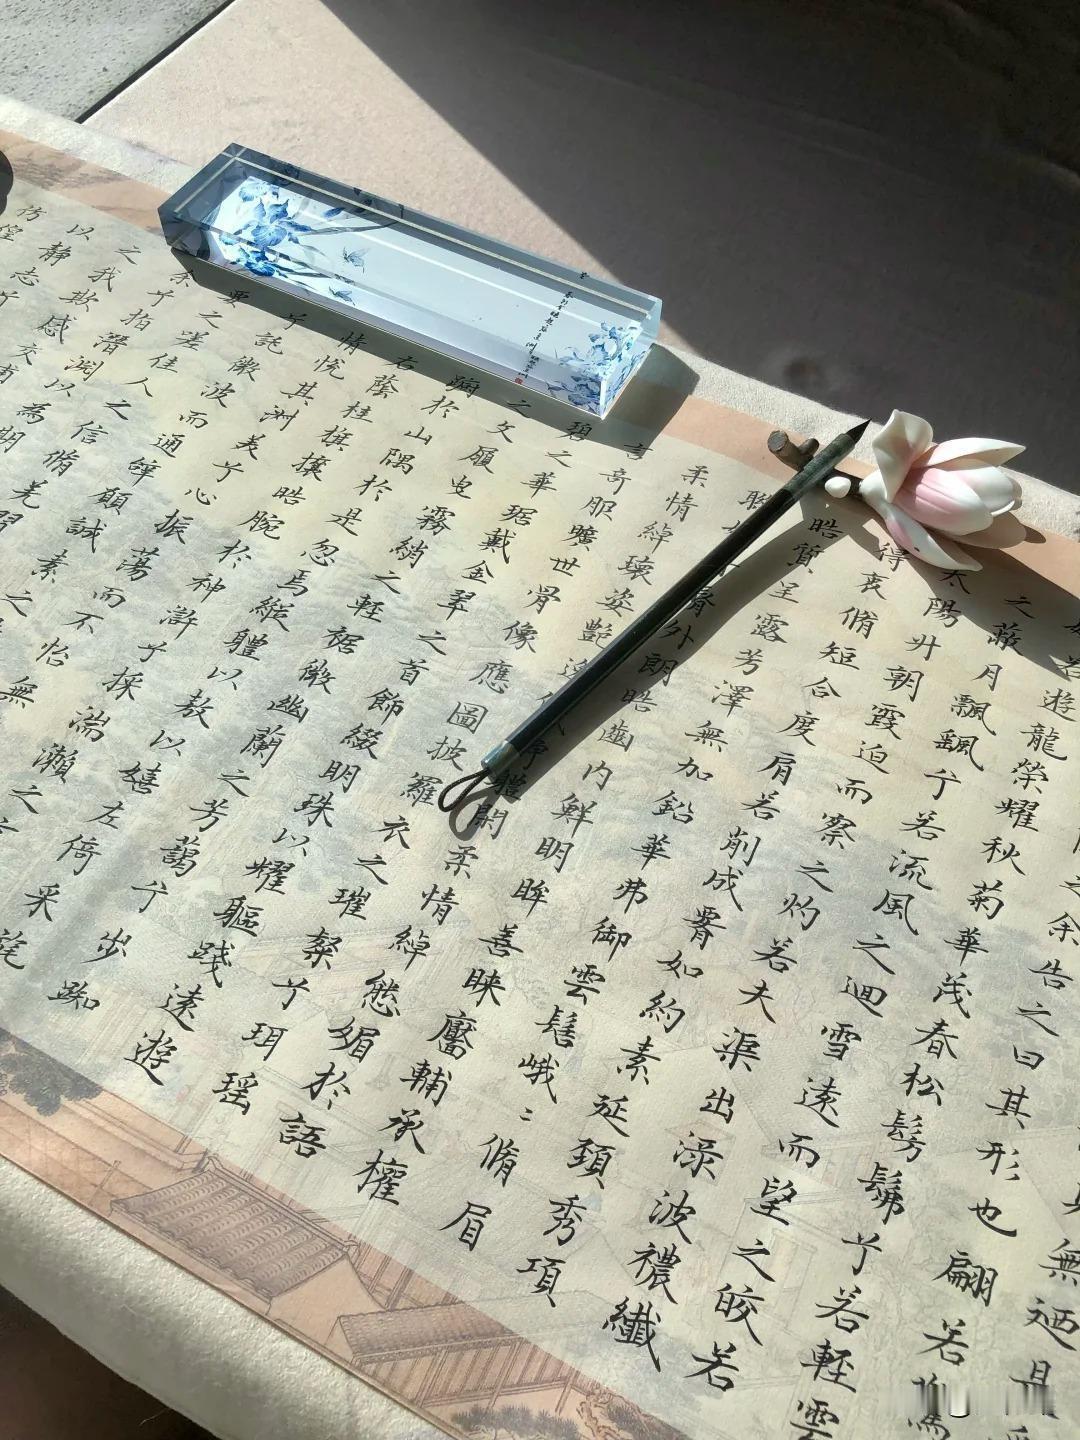 之余告之曰其形也翩若
若遊龍榮耀秋菊華茂春松髣髴兮若輕雲
之蔽月飄飖兮若流風之迴雪遠而望之皎若
太陽升朝霞迫而察之灼若夫渠出淥波襛纖
得衷脩短合度肩若削成腰如約素延頸秀項
皓質呈露芳澤無加鉛華弗御雲髻峨〻脩眉
聯脣外朗皓齒内鮮明眸善睞靨輔承權
柔情綽瓌姿艷逸體閑柔情綽態媚於語
言奇服曠世骨像應圖披羅衣之璀粲兮珥瑶
碧之華琚戴金翠之首飾綴明珠以耀軀踐遠遊
之文履曳霧綃之輕裾微幽蘭之芳藹兮步踟
蹰於山隅於是忽焉縱體以敖以嬉左倚采
右蔭桂旗攘皓腕於神滸兮採湍瀨之
情悅其淑美兮心振蕩而不怡無
兮託微波而通辭願誠素之
要之嗟佳人之信脩羌習
余兮指潛淵以為期
之我欺感交甫
以靜志兮
彷徨